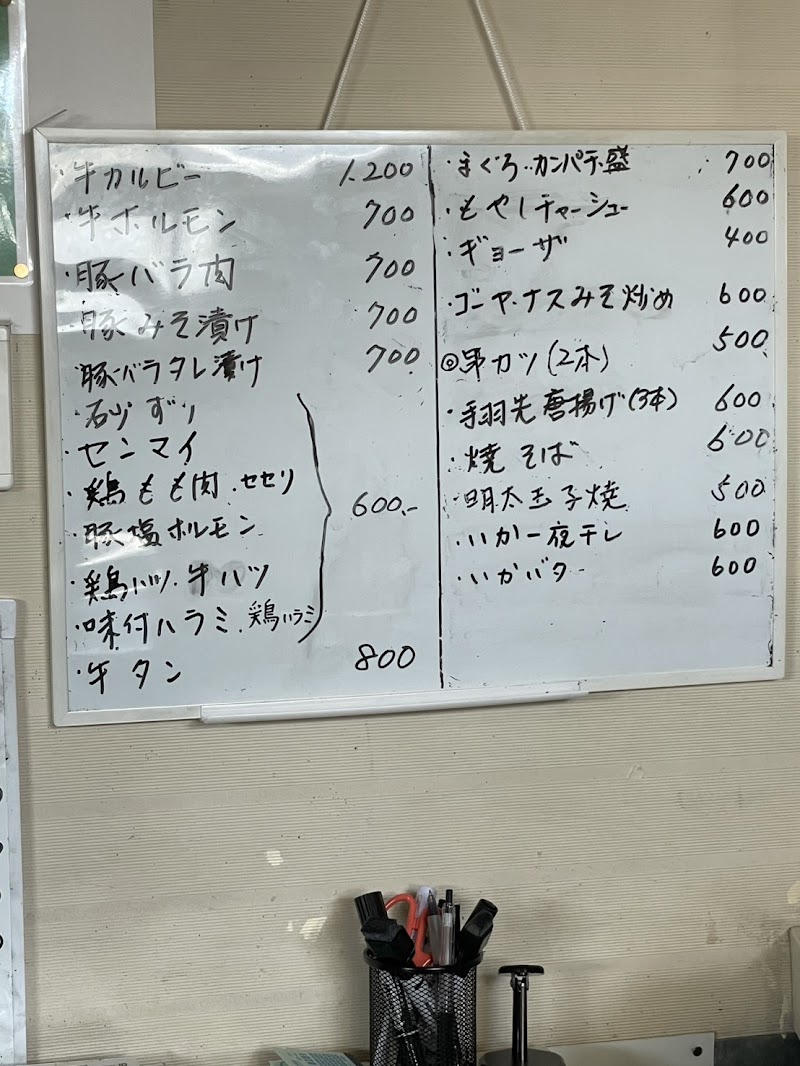 ・牛カルビー 1.200
・牛ホルモン 700
・豚バラ肉 700
・豚みそ漬け 700
・豚バラタレ漬け 700
・砂ずり
・センマイ
・鶏もも肉.セセリ
・豚塩ホルモン 600.-
・鶏ハツ.牛ハツ
・味付ハラミ.鶏ハラミ
・牛タン 800
・まぐろ.カンパチ盛 700
・もやしチャーシュー 600
・ギョーザ 400
・ゴーヤ.ナスみそ炒め 600
◎串カツ(2本) 500
・手羽先唐揚げ(3本) 600
・焼そば 600
・明太玉子焼 500
・いか一夜干し 600
・いかバター 600